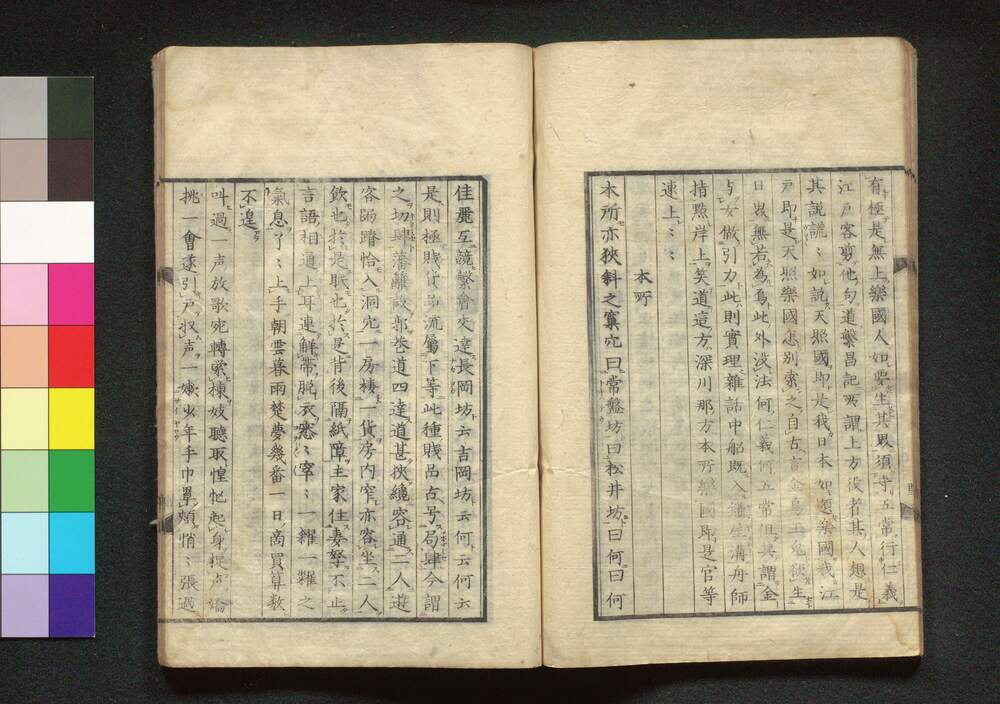 有極是無上樂國人如要生其界須守五常行仁義
江戸客剪他句道繁昌記所謂上方役者其人想是
其説謊〻如説天照國即是我日本如題樂國我江
戸即是天照樂國怎別索之自古金烏玉兎 生
日 無若為烏此外没法何仁義何五常但其謂金
与女做引力此則實理雑話中船既入 溝舟師
指點岸上笑道這方深川那方本所樂國即是官等
速上〻〻
本所
本所亦狹斜之窠穴曰常盤坊曰松井坊曰何曰何
佳麗互競繁會交達長岡坊云吉岡坊云何云何云
是則極賎貨品流屬下等此種賎品古号局肆今謂
之切肆藩籬設郭巷道四達道甚狹纔容通一人遊
客跼蹐恰入洞穴一房棲一貨房内窄亦容坐二人
飲也於是眠也於是背後隔紙障主家住妻孥不止
言語相通上耳連解帶脱衣 〻 〻一糶一糶之
氣息了〻上手朝雲暮雨楚夢幾番一日商買算数
不遑
叫過一声放歌宛轉 棟妓聽取惶忙起身提声嬌
挑一會遂引戸収声一嫩少年手巾罩頬悄〻張過